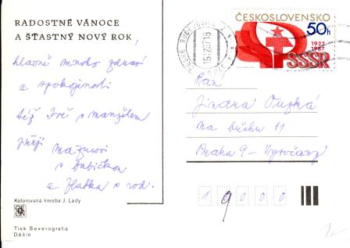 RADOSTNÉ VÁNOCE
A ŠŤASTNÝ NOVÝ ROK
hlavně mnoho zdraví
a spokojenosti
též Tvé s manželem
přejí Mazurovi
s babičkou
a Zlatka s rod.
Kolorovaná kresba J. Lady
Tisk Severografia
Děčín
ČESKOSLOVENSKO
50h
1922
1987
SSSR
Paní
Jiřina
Na břehu 11
Praha 9 - Vysočany
9 0 0 0